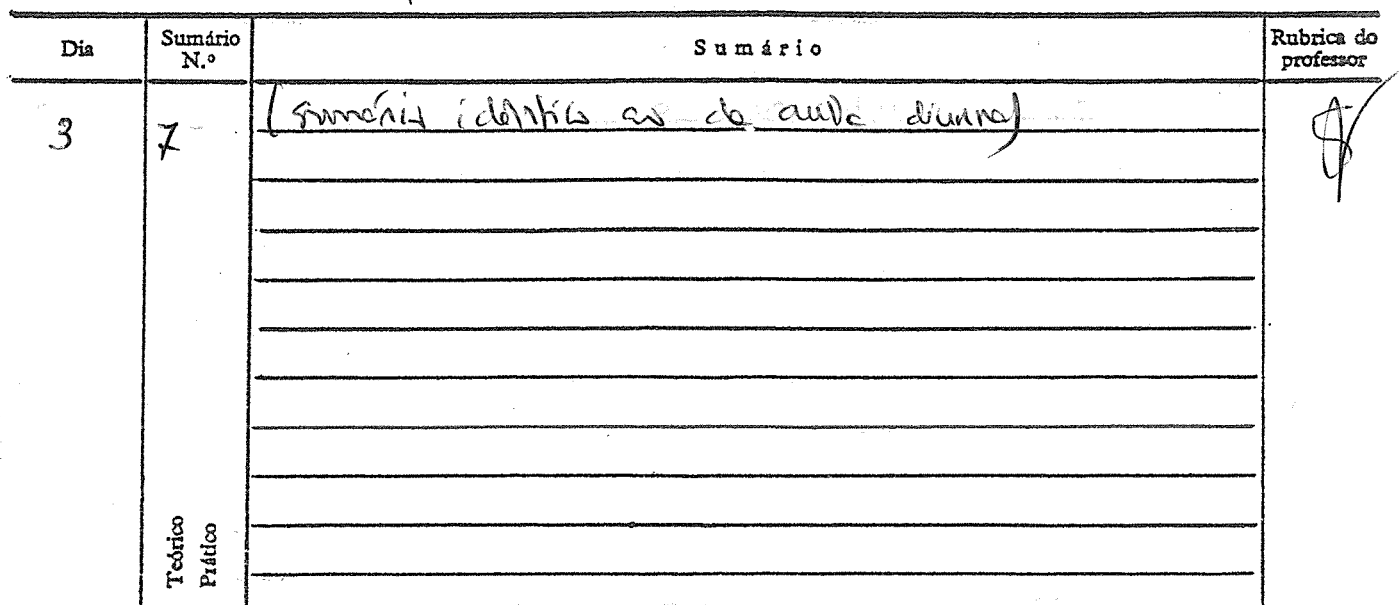 Dia Sumário N.º Sumário Rubrica do professor
3 7 (sumário idêntico ao da aula diurna)
Teórico
Prático